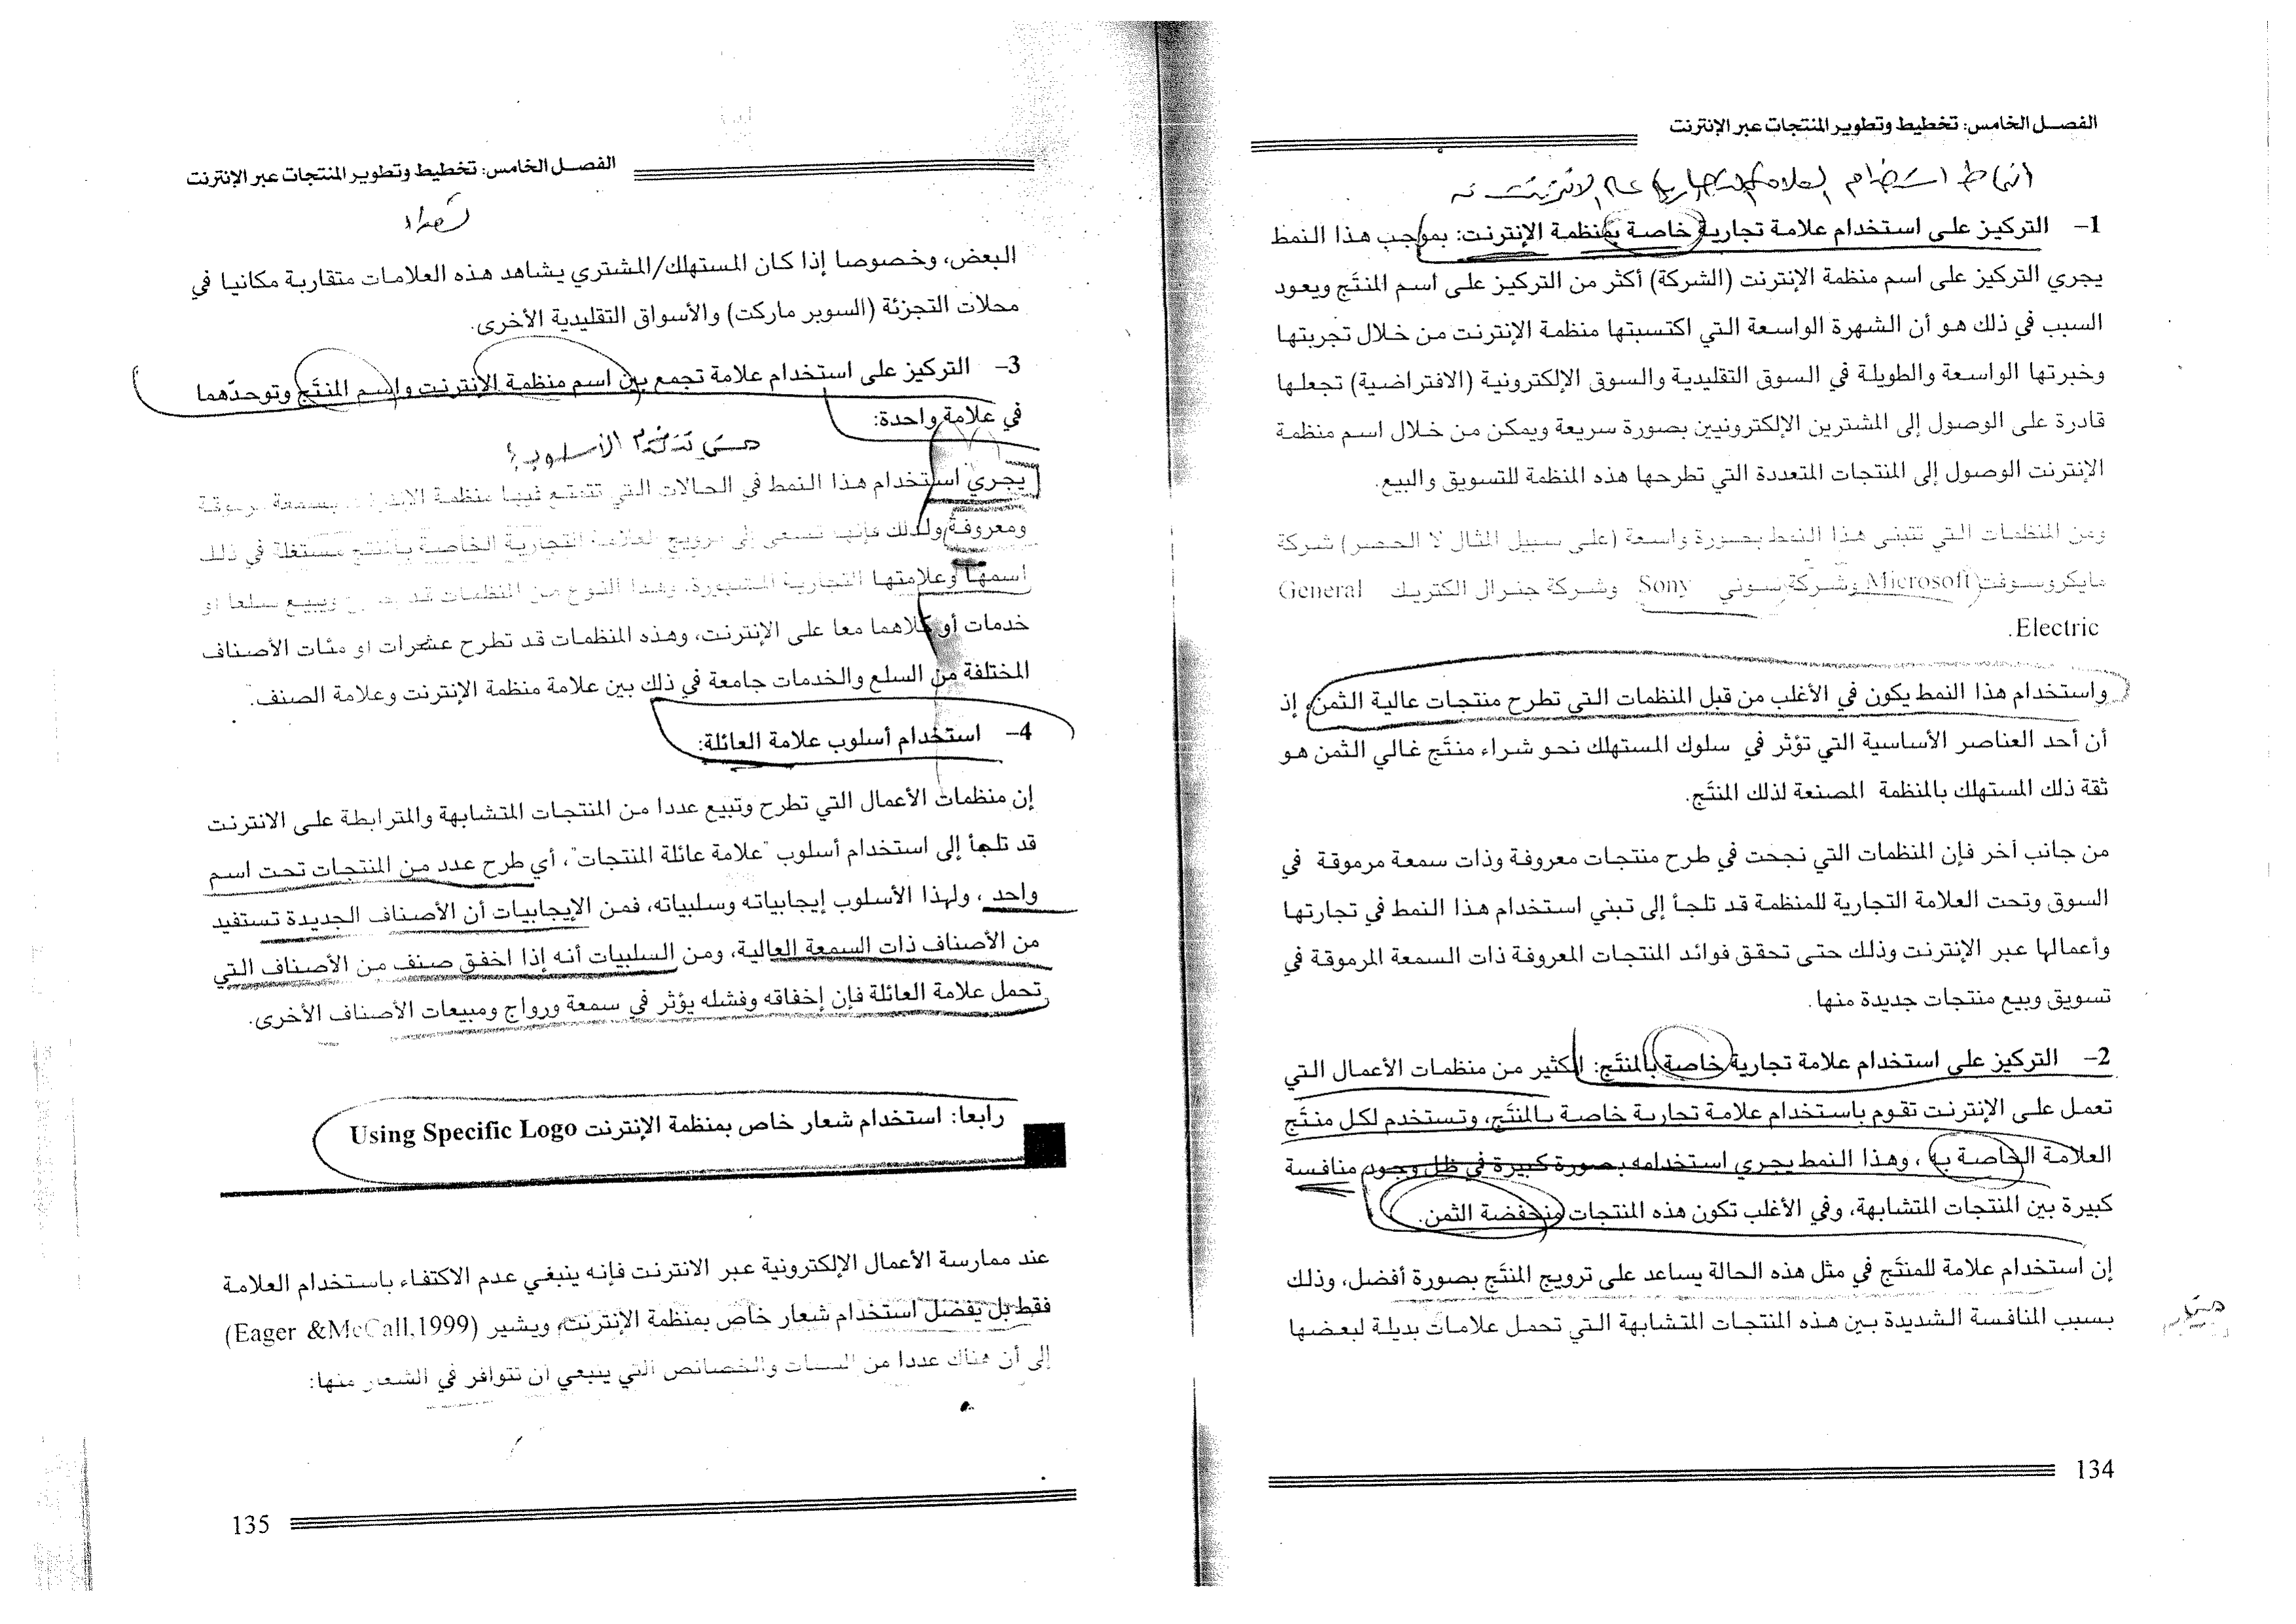 الفصل الخامس: تخطيط وتطوير المنتجات عبر الإنترنت
أنماط استخدام العلامة التجارية على الانترنت
1- التركيز على استخدام علامة تجارية خاصة بمنظمة الإنترنت: بموجب هذا النمط
يجري التركيز على اسم منظمة الإنترنت (الشركة) أكثر من التركيز على اسم المنتَج ويعود
السبب في ذلك هو أن الشهرة الواسعة التي اكتسبتها منظمة الإنترنت من خلال تجربتها
وخبرتها الواسعة والطويلة في السوق التقليدية والسوق الإلكترونية (الافتراضية) تجعلها
قادرة على الوصول إلى المشترين الإلكترونيين بصورة سريعة ويمكن من خلال اسم منظمة
الإنترنت الوصول إلى المنتجات المتعددة التي تطرحها هذه المنظمة للتسويق والبيع.
ومن المنظمات التي تتبنى هذا النمط بصورة واسعة (على سبيل المثال لا الحصر) شركة
مايكروسوفت Microsoft وشركة سوني Sony وشركة جنرال الكتريك General
Electric.
واستخدام هذا النمط يكون في الأغلب من قبل المنظمات التي تطرح منتجات عالية الثمن، إذ
أن أحد العناصر الأساسية التي تؤثر في سلوك المستهلك نحو شراء منتَج غالي الثمن هو
ثقة ذلك المستهلك بالمنظمة المصنعة لذلك المنتَج.
من جانب آخر فإن المنظمات التي نجحت في طرح منتجات معروفة وذات سمعة مرموقة في
السوق وتحت العلامة التجارية للمنظمة قد تلجأ إلى تبني استخدام هذا النمط في تجارتها
وأعمالها عبر الإنترنت وذلك حتى تحقق فوائد المنتجات المعروفة ذات السمعة المرموقة في
تسويق وبيع منتجات جديدة منها.
2- التركيز على استخدام علامة تجارية خاصة بالمنتَج: الكثير من منظمات الأعمال التي
تعمل على الإنترنت تقوم باستخدام علامة تجارية خاصة بالمنتَج، وتستخدم لكل منتَج
العلامة الخاصة به، وهذا النمط يجري استخدامه بصورة كبيرة في ظل وجود منافسة
كبيرة بين المنتجات المتشابهة، وفي الأغلب تكون هذه المنتجات منخفضة الثمن.
إن استخدام علامة للمنتَج في مثل هذه الحالة يساعد على ترويج المنتَج بصورة أفضل، وذلك
بسبب المنافسة الشديدة بين هذه المنتجات المتشابهة التي تحمل علامات بديلة لبعضها
134
الفصل الخامس: تخطيط وتطوير المنتجات عبر الإنترنت
البعض، وخصوصا إذا كان المستهلك/المشتري يشاهد هذه العلامات متقاربة مكانيا في
محلات التجزئة (السوبر ماركت) والأسواق التقليدية الأخرى.
3- التركيز على استخدام علامة تجمع بين اسم منظمة الإنترنت واسم المنتَج وتوحدّهما
في علامة واحدة:
الأسلوب؟
يجري استخدام هذا النمط في الحالات التي تتمتع فيها منظمة الإنترنت بسمعة مرموقة
ومعروفة ولذلك فإنها تسعى إلى ترويج العلامة التجارية الخاصة بالمنتج مستغلة في ذلك
اسمها وعلامتها التجارية المشهورة، وهذا النوع من المنظمات قد ويبيع سلعا او
خدمات أو كلاهما معا على الإنترنت، وهذه المنظمات قد تطرح عشرات او مئات الأصناف
المختلفة من السلع والخدمات جامعة في ذلك بين علامة منظمة الإنترنت وعلامة الصنف.
4- استخدام أسلوب علامة العائلة:
إن منظمات الأعمال التي تطرح وتبيع عددا من المنتجات المتشابهة والمترابطة على الانترنت
قد تلجأ إلى استخدام أسلوب "علامة عائلة المنتجات"، أي طرح عدد من المنتجات تحت اسم
واحد، ولهذا الأسلوب إيجابياته وسلبياته، فمن الإيجابيات أن الأصناف الجديدة تستفيد
من الأصناف ذات السمعة العالية، ومن السلبيات أنه إذا اخفق صنف من الأصناف التي
تحمل علامة العائلة فإن إخفاقه وفشله يؤثر في سمعة ورواج ومبيعات الأصناف الأخرى.
رابعا: استخدام شعار خاص بمنظمة الإنترنت Using Specific Logo
عند ممارسة الأعمال الإلكترونية عبر الانترنت فإنه ينبغي عدم الاكتفاء باستخدام العلامة
فقط بل يفضل استخدام شعار خاص بمنظمة الإنترنت، ويشير (Eager &McCall,1999)
إلى أن هناك عددا من السمات والخصائص التي ينبغي أن تتوافر في الشعار منها:
135